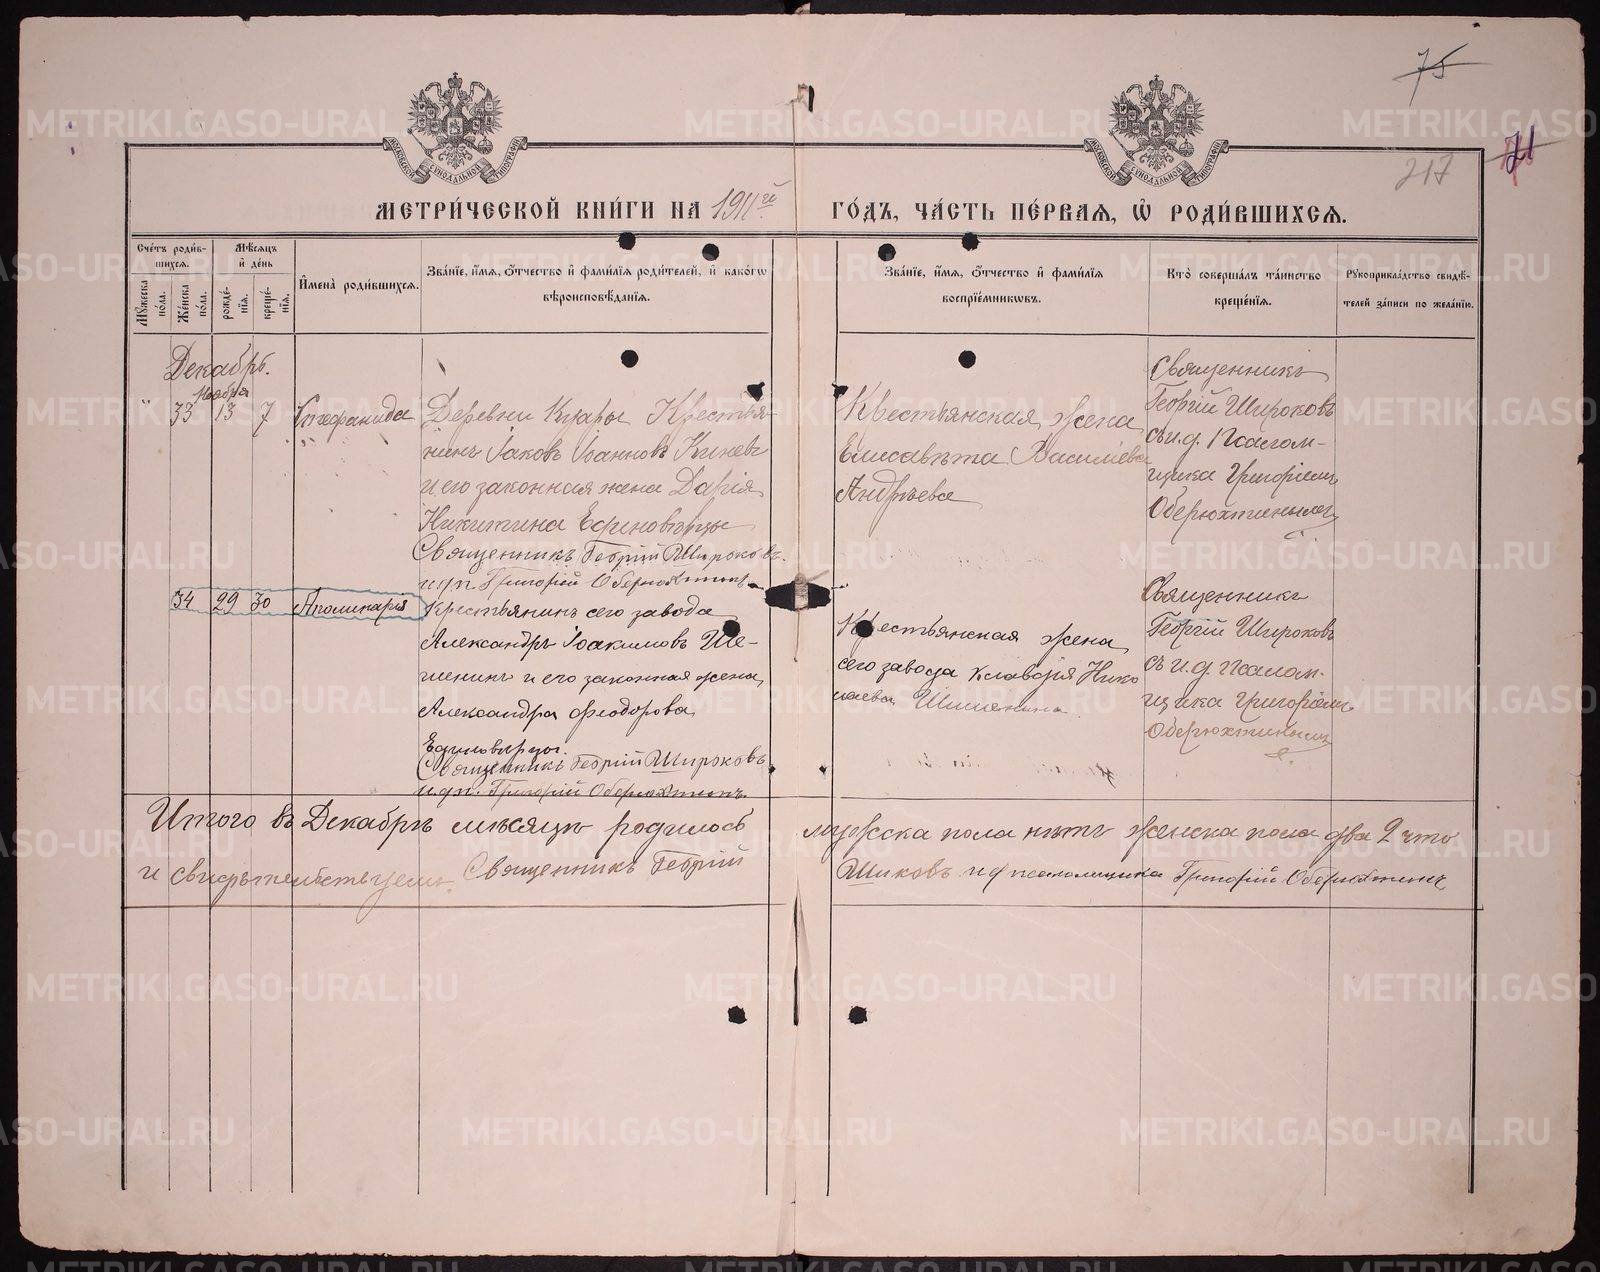 75
71
217
МОСКОВСКОЙ СѴНОДАЛЬНОЙ ТИПОГРАФІИ
МОСКОВСКОЙ СѴНОДАЛЬНОЙ ТИПОГРАФІИ
МЕТРИ́ЧЕСКОЙ КНИ́ГИ НА 1911й ГО́ДЪ, ЧА́СТЬ ПЕ́РВАЯ, Ѡ҆ РОДИ́ВШИХСЯ.
Сче́тъ роди́вшихся.
Мꙋ́жеска по́ла.
Же́нска по́ла.
Мѣ́сяцъ и҆ де́нь
рожде́нїя.
креще́нїя.
И҆мена̀ роди́вшихся.
Зва́нїе, и҆́мя, ѻ҆́тчество и҆ фами́лїя роди́телей, и҆ како́гѡ
вѣроисповѣ́данїя.
Зва́нїе, и҆́мя, ѻ҆́тчество и҆ фами́лїя
воспрїе́мникѡвъ.
Кто̀ соверша́лъ та́инство
креще́нїя.
Рꙋкоприкла́дство свидѣ́-
телей за́писи по жела́нїю.
Декабрь.
Ноября
" 33 13 7 Стефанида
Деревни Крестья-
нинъ Іаковъ Іоанновъ Киневъ
и его законная жена Дарія
Никитина Единовѣрцы
Священникъ Георгій Широковъ.
и.д.п. Григорій Оберюхтинъ
Крестьянская жена
Елисавета Василіева
Андреева
Священникъ
Георгій Широковъ
съ и.д. Псалом-
щика Григоріемъ
Оберюхтинымъ
34 29 30 Аполинарія
Крестьянинъ сего завода
Александръ Іоакимовъ Ше-
шенинъ и его законная жена
Александра Феодорова
Единовѣрцы.
Священникъ Георгій Широковъ
и.д.п. Григорій Оберюхтинъ.
Крестьянская жена
сего завода Клавдія Нико
лаева
Священникъ
Георгій Широковъ
съ и.д. Псалом-
щика Григоріемъ
Оберюхтинымъ
Итого въ Декабрѣ мѣсяцѣ родилось мужска пола нѣтъ женска пола два 2 что
и свидѣтельствуемъ. Священникъ Георгій Шиковъ и д псаломщика Григорій Оберюхтинъ
METRIKI.GASO-URAL.RU